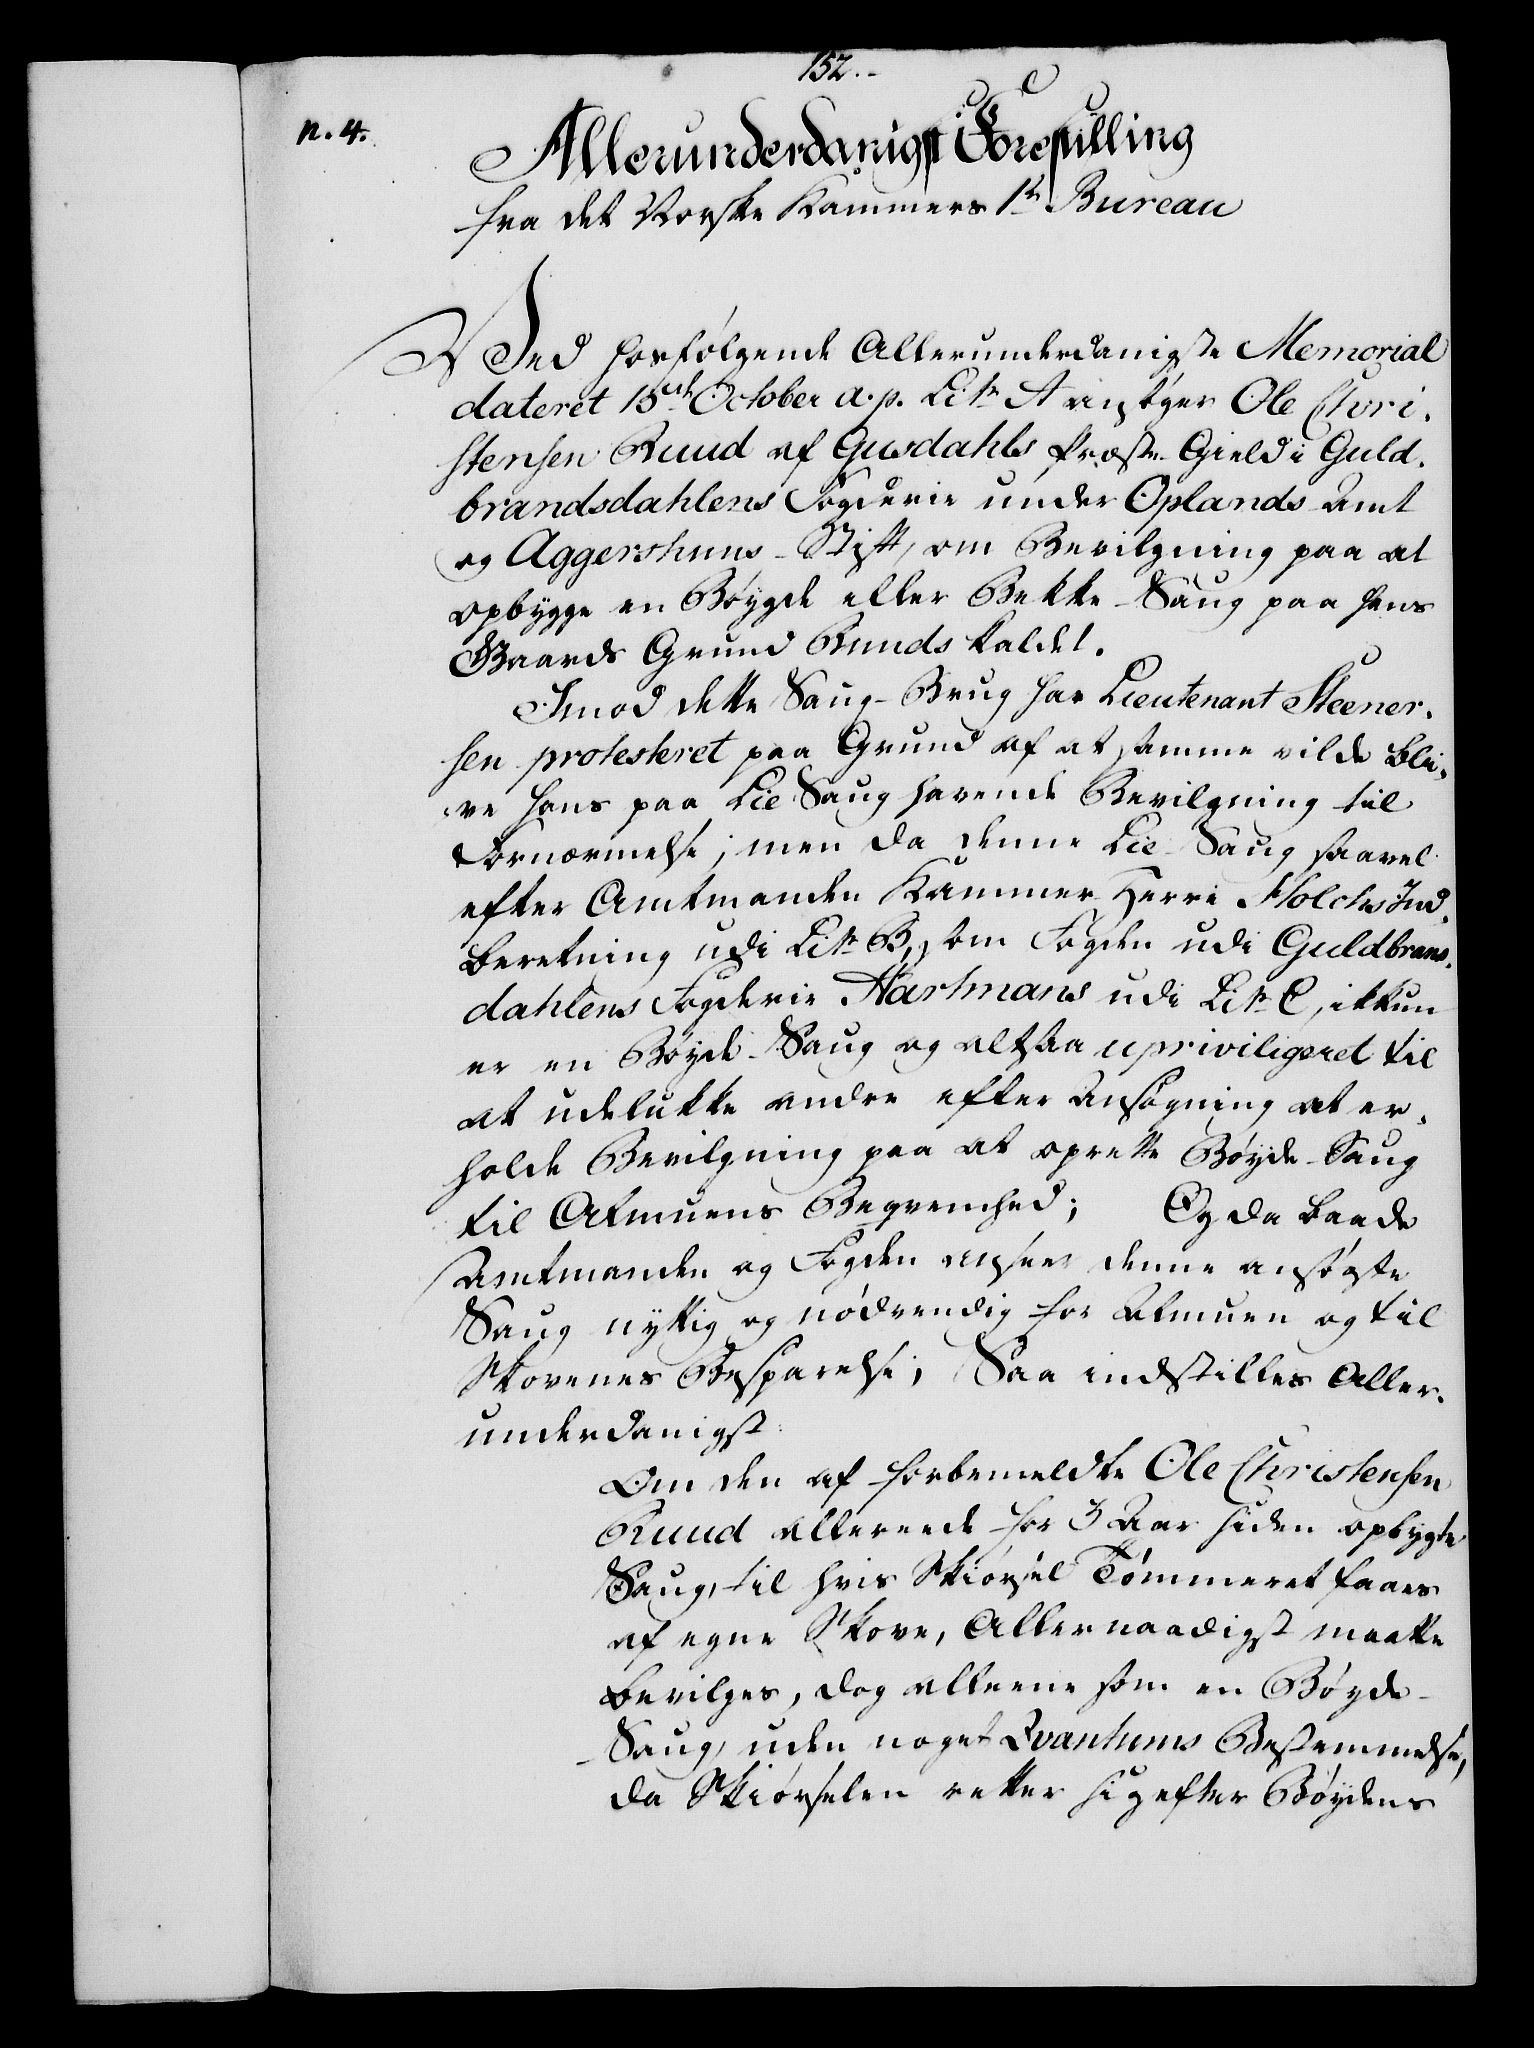 152.-
n. 4.
Allerunderdanigst Forestilling
fra det Norske Kammers 1te Bureau
Ved hosfølgende Allerunderdanigste Memorial
dateret 15de October a. p. Litr A ansøger Ole Chri-
stensen Ruud af Gusdahls Præste-Gield i Guld-
brandsdahlens Fogderie under Oplands Amt
og Aggershuus-Stift, om Bevilgning paa at
opbygge en Bøygde eller Bekke-Saug paa hans
Gaards Grund Ruuds kaldet.
Imod dette Saug-Brug har Lieutenant Steener-
sen protesteret paa Grund af at samme vilde bli-
ve hans paa Lie Saug havende Bevilgning til
Fornærmelse; men da denne Lie Saug saavel
efter Amtmanden Kammer-Herre Holcks Ind-
beretning udi Litr B, som Fogden udi Guldbrans-
dahlens Fogderie Hartmans udi Litr C, ikkun
er en Bøyde-Saug og altsaa upriviligeret til
at udelukke andre efter Ansøgning at er-
holde Bevilgning paa at oprette Bøyde-Saug
til Almuens Beqvemhed; Og da baade
Amtmanden og Fogden ansee denne ansøgte
Saug nyttig og nødvendig for Almuen og til
Skovenes Besparelse; Saa indstilles Aller-
underdanigst:
Om den af forbemeldte Ole Christensen
Ruud allereede for 3 Aar siden opbygte
Saug, til hvis Skiørsel Tømmeret faaes
af egne Skove, Allernaadigst maatte
bevilges, dog alleene som en Bøyde-
Saug, uden noget Qvantums Bestemmelse,
da Skiørselen retter sig efter Bøydens